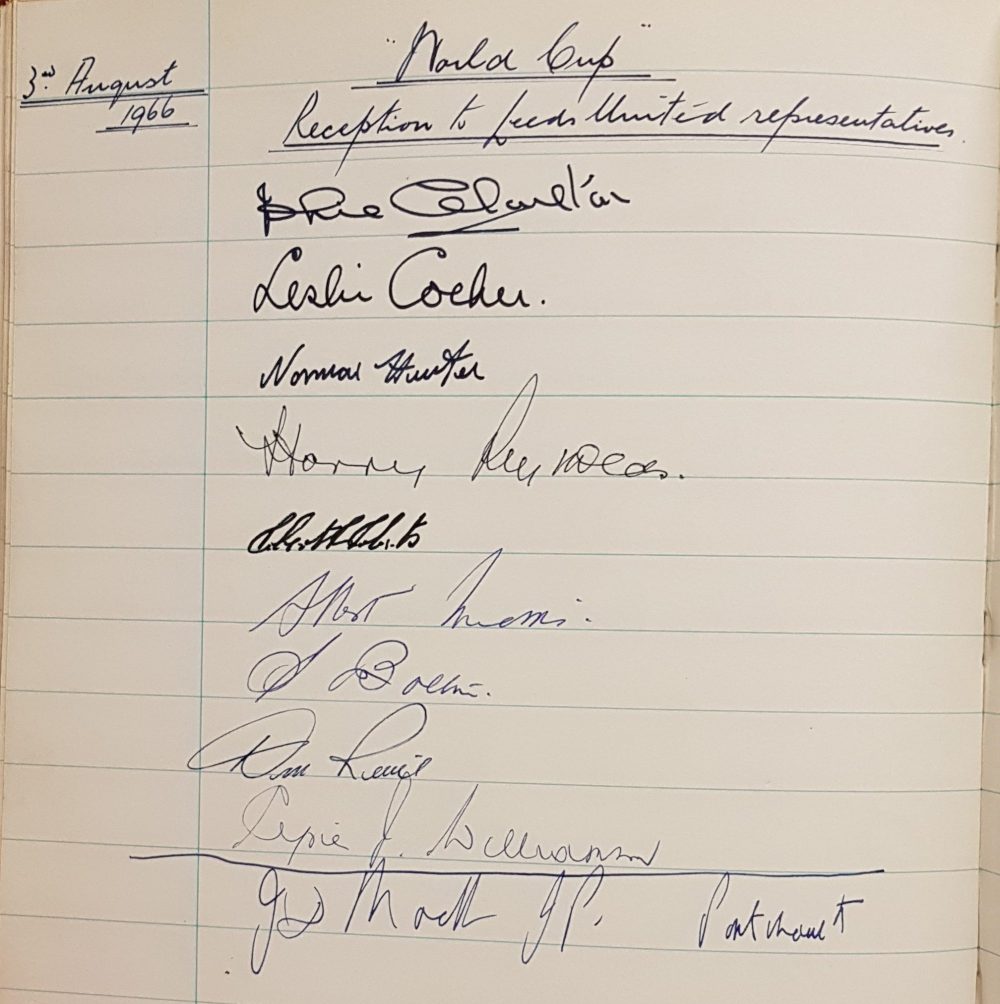 3rd August
1966
"World Cup"
Reception to Leeds United representatives.
Jackie Charlton
Leslie Cocker.
Norman Hunter
Harry Reynolds.
Albert Morris.
S Bolton.
Don Revie
J. Williamson
J.P.